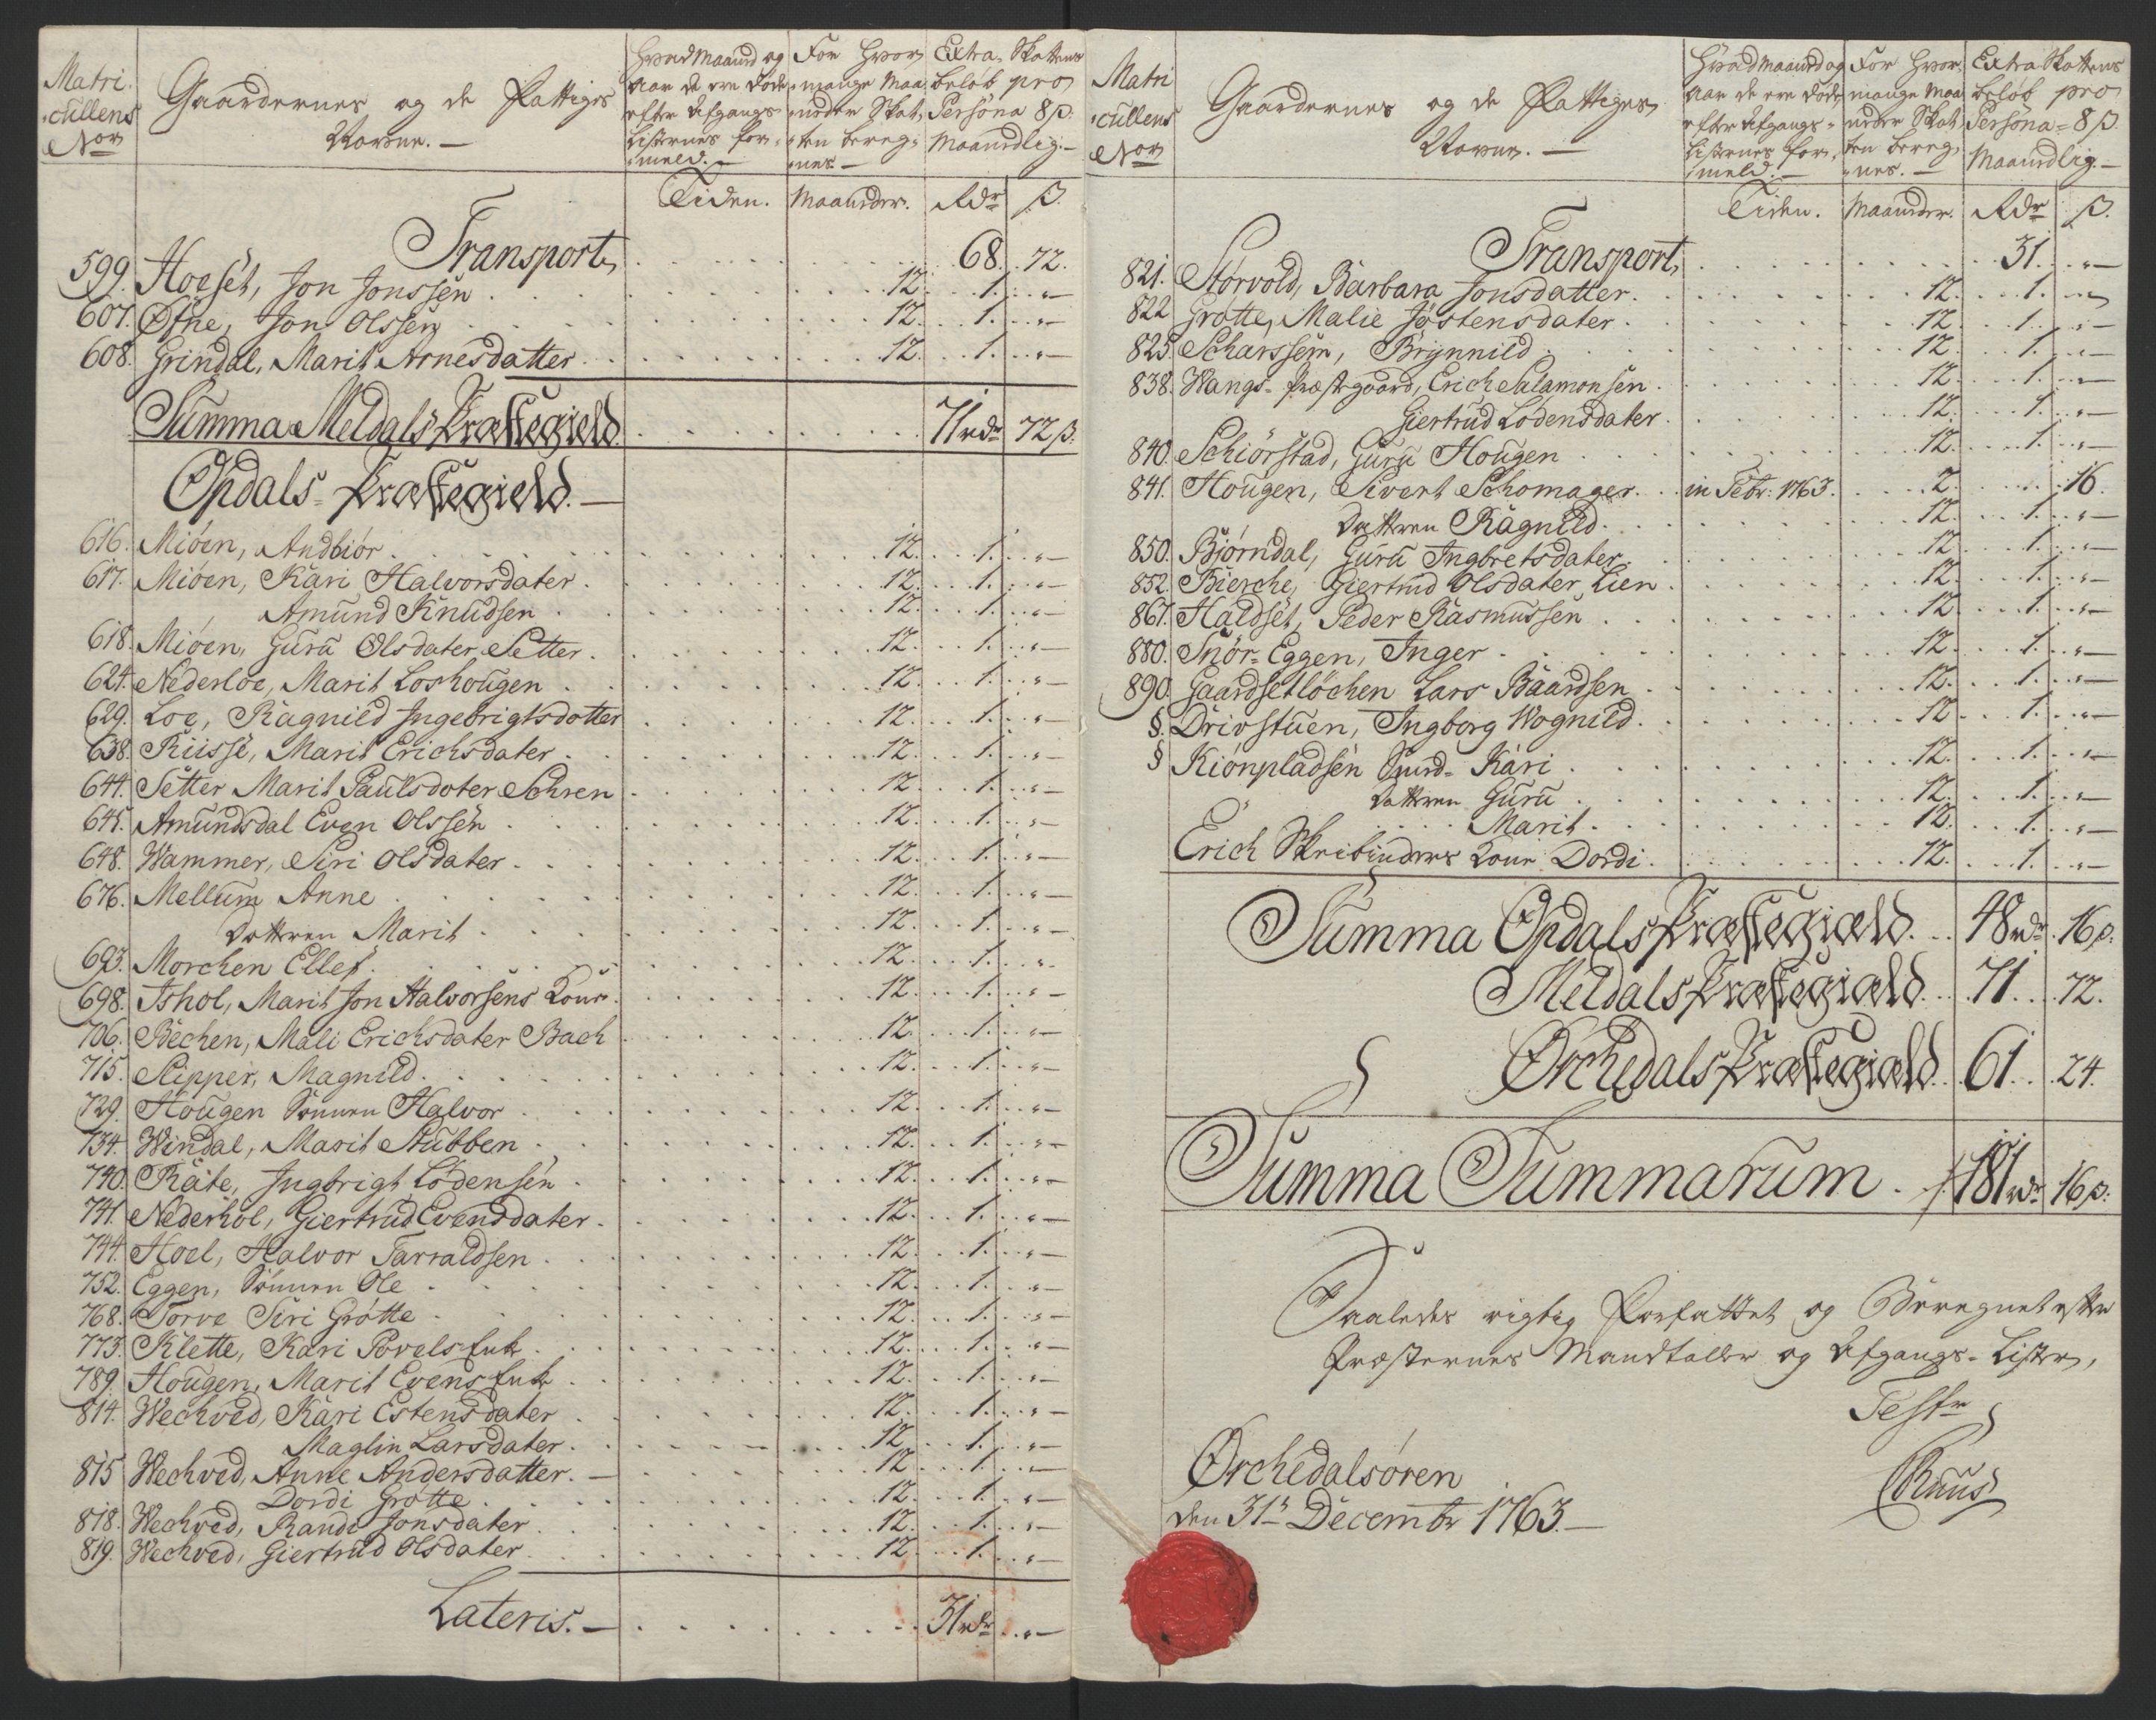 Matri
cullens
Nor
Gaardernes og de Fattiges
Navne. —
Hvad Maaned og
Aar de ere døde
efter Afgangs-
Listernes for-
meld. —
For Hvor
mange Maa
neder Skat
ten bereg-
nes. —
Extra Skattens
beløb pro
Persona 8 β.
Maanedlig. —
Tiden. Maaneder. Rdr β.
Transport 68. 72.
599. Hoesët, Jon Jonssen 12. 1. „—
607. Øfne, Jon Olssen 12. 1. „—
608. Grindal, Marit Arnesdatter 12. 1. „—
Summa Meldals Præstegield 71 rdr 72 β.
Opdals Præstegield. —
616. Miøen, Andbiør 12. 1. „—
617. Miøen, Kari Halvorsdater 12. 1. „—
Amund Knudsen 12. 1. „—
618. Miøen, Guru Olsdater Setter 12. 1. „—
624. Nederloe, Marit Loshougen 12. 1. „—
629. Loe, Ragnild Ingebrigtsdotter 12. 1. „—
638. Riise, Marit Erichsdater 12. 1. „—
644. Setter Marit Paulsdoter Schren 12. 1. „—
645. Amundsdal Even Olssen 12. 1. „—
648. Wammer, Siri Olsdater 12. 1. „—
676. Mellum Anne 12. 1. „—
Datteren Marit 12. 1. „—
693. Morchen Ellef 12. 1. „—
698. Ishol, Marit Jon Halvorsens Kone 12. 1. „—
706. Bechen, Mali Erichsdater Bach 12. 1. „—
715. Slipper, Magnild 12. 1. „—
729. Hougen Sønnen Halvor 12. 1. „—
734. Windal, Marit Stubben 12. 1. „—
740. Räte, Ingbrigt Lodensen 12. 1. „—
741. Nederhol, Giertrud Evensdater 12. 1. „—
744. Hoel, Halvor Tarraldsen 12. 1. „—
752. Eggen, Sønnen Ole 12. 1. „—
768. Torve Siri Grøtte 12. 1. „—
773. Klette, Kari Povels Enk 12. 1. „—
789. Hougen, Marit Evens Enk 12. 1. „—
814. Wechved, Kari Estensdater 12. 1. „—
Maglin Larsdater 12. 1. „—
815 Wechved, Anne Andersdatter. 12 1. „—
Dordi Grøtte 12. 1. „—
818. Wechved, Randi Jonsdater 12. 1. „—
819. Wechved, Giertrud Olsdater 12 1. „—
Lateris. — 31 rdr „—
Matri
cullens
Nor
Gaardernes og de Fattiges
Navne. —
Hvad Maaned og
Aar de ere døde
efter Afgangs-
Listernes for-
meld. —
For Hvor
mange Maa
neder Skat
ten bereg-
nes. —
Extra Skattens
beløb pro
Persona 8 β.
Maanedlig. —
Tiden. Maaneder. Rdr β.
Transport 31. „—
821. Storvold, Barbara Jonsdatter. 12. 1. „—
822 Grøtte, Malie Jostensdater 12. 1. „—
825 Scharssem, Brynnild 12. 1. „—
838. Wangs-Præstegaard, Erich Salamonsen 12. 1. „—
Giertrud Lodensdater 12. 1. „—
840. Schiørstad, Guru Hougen 12. 1. „—
841. Hougen, Sivert Schomager. in Febr: 1763. 2. 16.
Datteren Ragnild 12. 1. „—
850. Bjørndal, Guru Ingbretsdater 12 1. „—
852. Bierche, Giertrud Olsdater Lien 12. 1. „—
867. Haldset, Peder Rasmussen 12 1. „—
880. Snør-Eggen, Inger 12. 1. „—
890. Gaardsetløchen Lars Baardsen 12. 1. „—
§. Drivstuen, Ingborg Wognild 12 1. „—
§ Kiønpladsen Smed- Kari 12. 1. „—
Datteren Guru 12. 1. „—
Marit 12. 1. „—
Erich Skribinders Kone Dordi 12. 1. „—
Summa Opdals Præstegield 48 rdr 16 β.
Meldals Præstegield 71. 72.
Ørchedals Præstegield 61. 24.
Summa Summarum 181 rdr 16 β.
Saaledes rigtig Forfattet og Beregnet efter
Præsternes Mandtaller og Afgangs-Lister,
Test
Ørchedalsøren
den 31te Decembr 1763. —